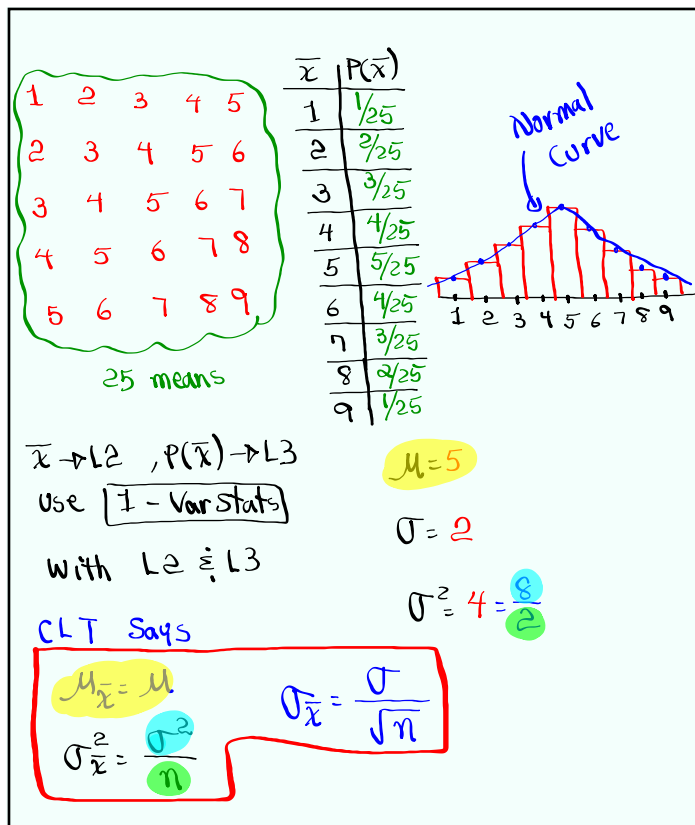 1 2 3 4 5
2 3 4 5 6
3 4 5 6 7
4 5 6 7 8
5 6 7 8 9
25 means
x̄ P(x̄)
1 1/25
2 2/25
3 3/25
4 4/25
5 5/25
6 4/25
7 3/25
8 2/25
9 1/25
Normal
Curve
1 2 3 4 5 6 7 8 9
x̄ → L2 , P(x̄) → L3
use 1-VarStats
with L2 & L3
μ = 5
σ = 2
σ² = 4 = 8/2
CLT Says
μx̄ = μ.
σ²x̄ = σ²/n
σx̄ = σ/√n